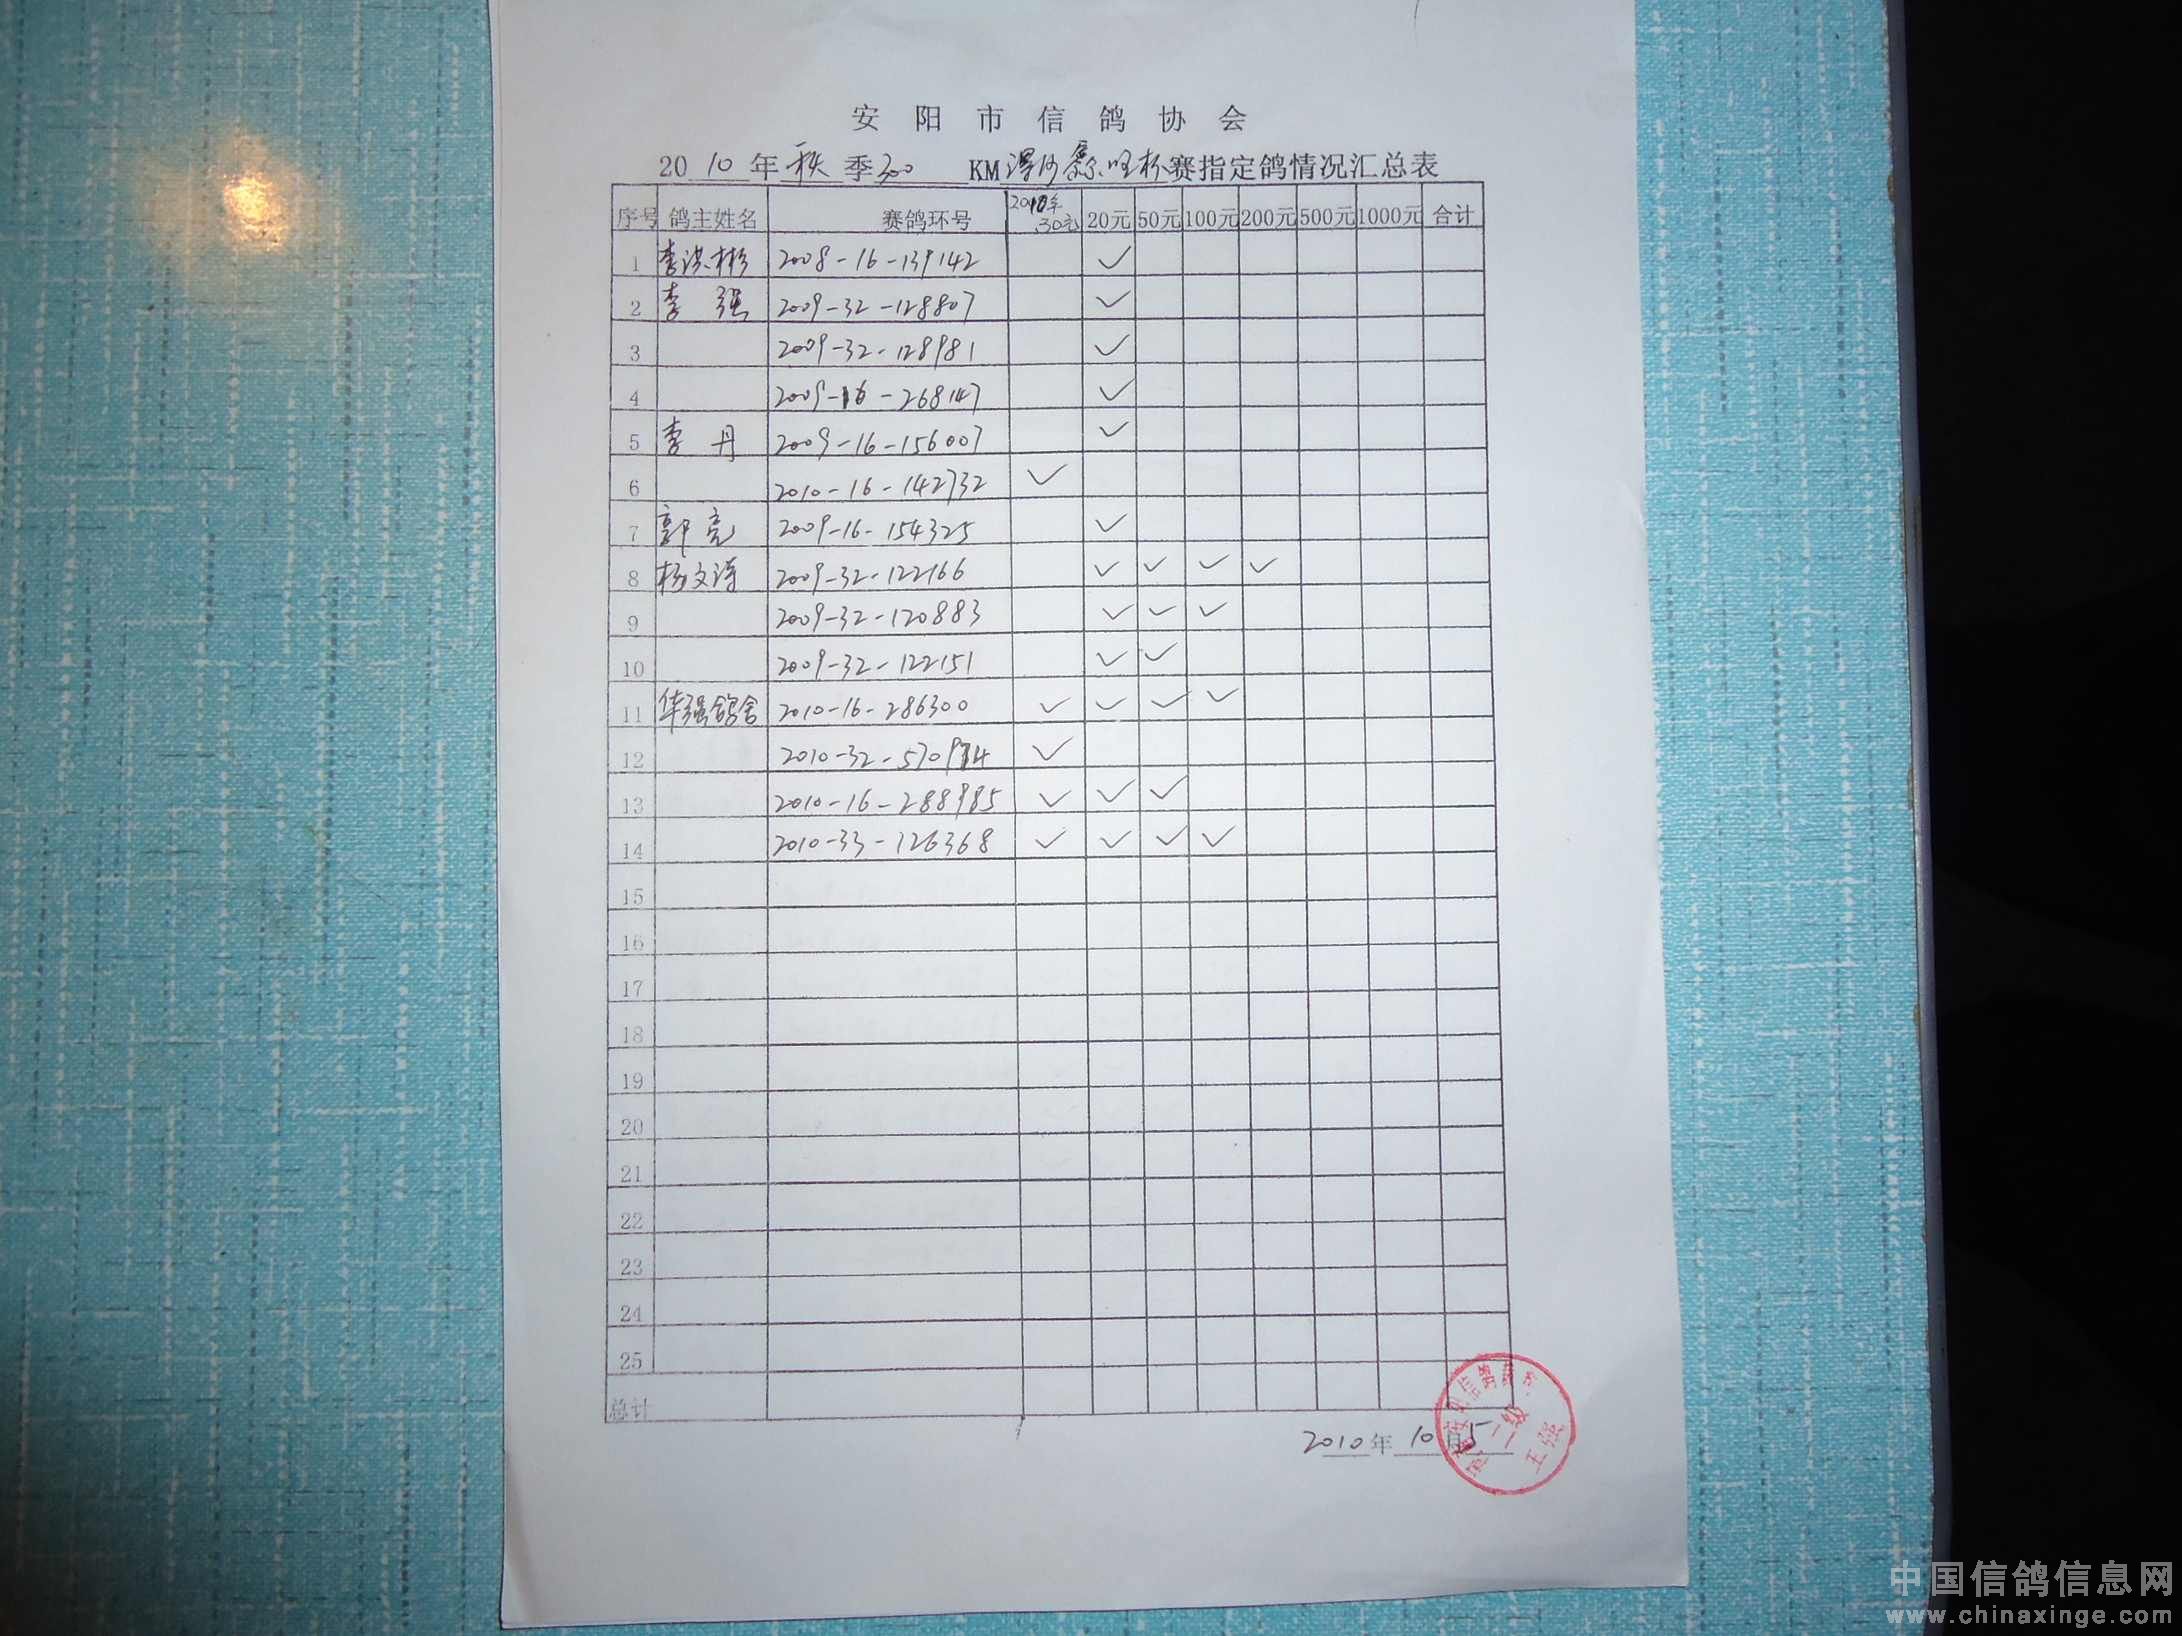 安阳市信鸽协会
2010年秋季300 KM 赛指定鸽情况汇总表
序号 鸽主姓名 赛鸽环号 2010年30元 20元 50元 100元 200元 500元 1000元 合计
1 李洪彬 2008-16-139142 ✓
2 李强 2009-32-128807 ✓
3 2009-32-128981 ✓
4 2009-16-268147 ✓
5 李丹 2009-16-156007 ✓
6 2010-16-142732 ✓
7 郭亮 2009-16-154325 ✓
8 杨文涛 2009-32-122166 ✓ ✓ ✓ ✓
9 2009-32-120883 ✓ ✓ ✓
10 2009-32-122151 ✓ ✓
11 华强鸽舍 2010-16-286300 ✓ ✓ ✓ ✓
12 2010-32-570974 ✓
13 2010-16-288985 ✓ ✓ ✓
14 2010-33-126368 ✓ ✓ ✓ ✓
15
16
17
18
19
20
21
22
23
24
25
总计
2010年10月5
信鸽
二级
王强
中国信鸽信息网
www.chinaxinge.com